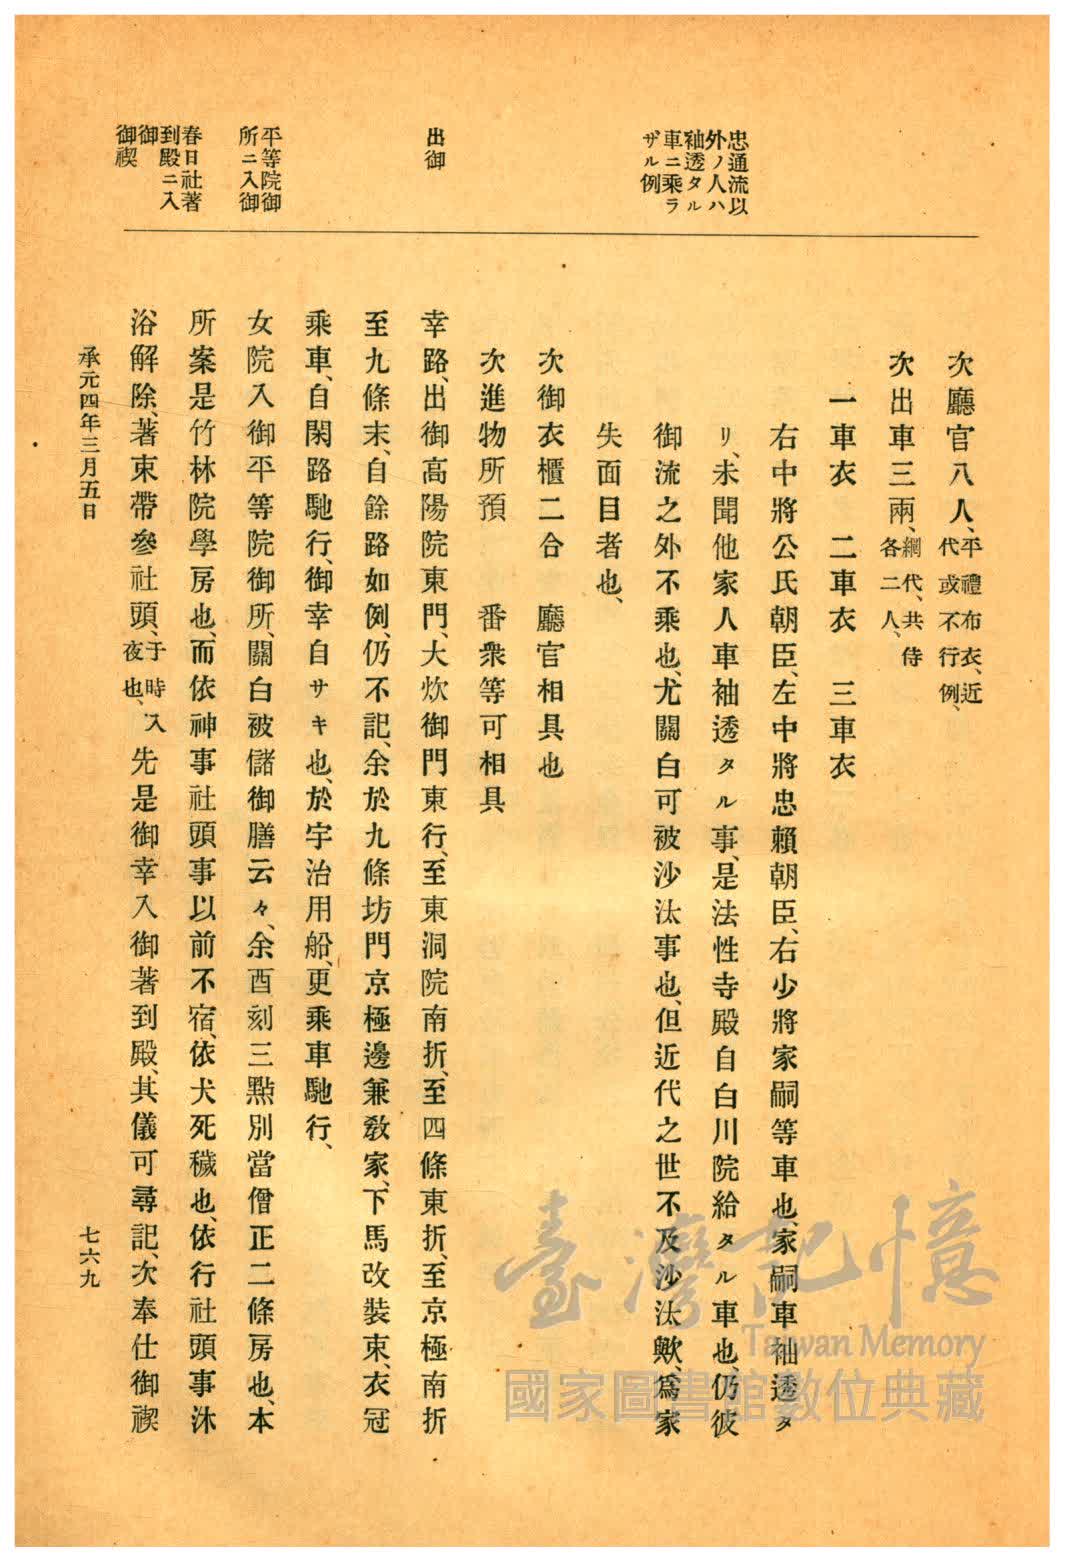 忠通流以
外ノ人ハ
袖透タル
車ニ乘ラ
ザル例
出御
平等院御
所ニ入御
春日社著
到殿ニ入
御
御禊
次廳官八人、平禮布衣、近
代或不行例、
次出車三兩、網代、共侍
各二人、
一車衣　二車衣　三車衣
右中將公氏朝臣、左中將忠賴朝臣、右少將家嗣等車也、家嗣車袖透タ
リ、未聞他家人車袖透タル事、是法性寺殿自白川院給タル車也、仍彼
御流之外不乘也、尤關白可被沙汰事也、但近代之世不及沙汰歟、爲家
失面目者也、
次御衣櫃二合　廳官相具也
次進物所預　番衆等可相具
幸路、出御高陽院東門、大炊御門東行、至東洞院南折、至四條東折、至京極南折
至九條末、自餘路如例、仍不記、余於九條坊門京極邊兼敎家、下馬改裝束、衣冠
乘車、自閑路馳行、御幸自サキ也、於宇治用船、更乘車馳行、
女院入御平等院御所、關白被儲御膳云々、余酉刻三點別當僧正二條房也、本
所案是竹林院學房也、而依神事社頭事以前不宿、依犬死穢也、依行社頭事沐
浴解除、著束帶參社頭、于時入
夜也、先是御幸入御著到殿、其儀可尋記、次奉仕御禊
承元四年三月五日
七六九
臺灣記憶
Taiwan Memory
國家圖書館數位典藏